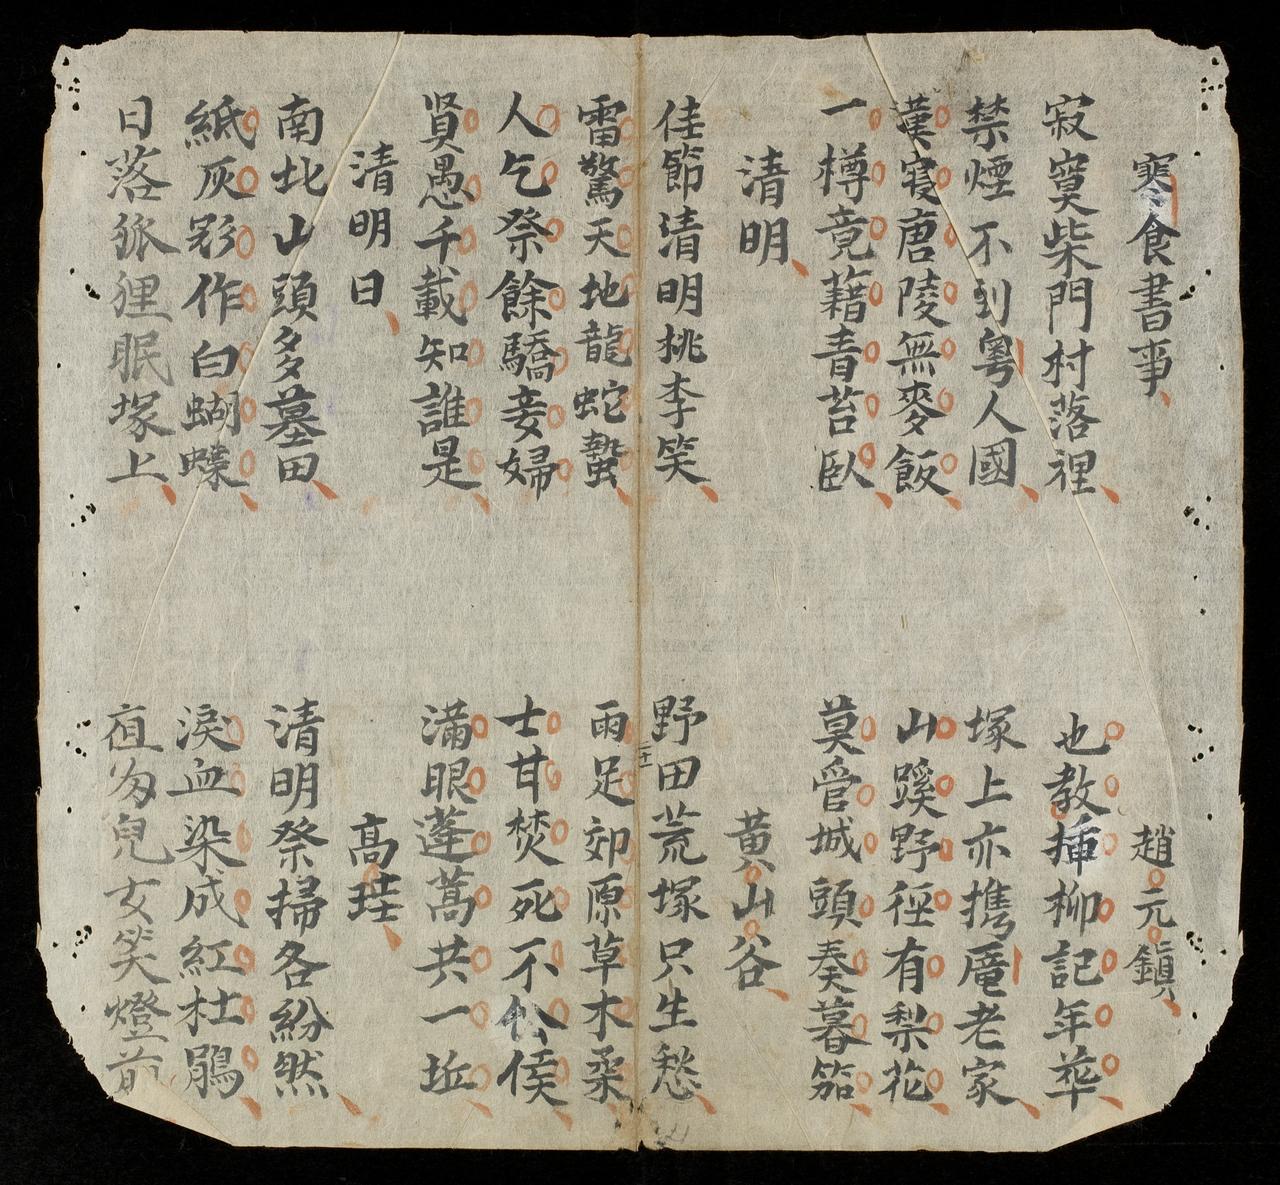 寒食書事 趙元鎮
寂寞柴門村落裡 也教揷柳記年華
禁煙不到粵人國 塚上亦携龐老家
漢寢唐陵無麥飯 山蹊野徑有梨花
一樽竟藉青苔臥 莫管城頭奏暮笳
清明 黃山谷
佳節清明桃李笑 野田荒塚只生愁
雷驚天地龍蛇蟄 雨足郊原草木柔
人乞祭餘驕妾婦 士甘焚死不侯
賢愚千載知誰是 滿眼蓬蒿共一坵
清明日 高
南北山頭多墓田 清明祭掃各紛然
紙灰影作白蝴蝶 淚血染成紅杜鵑
日落狐狸眠塚上 夜兒女笑燈前